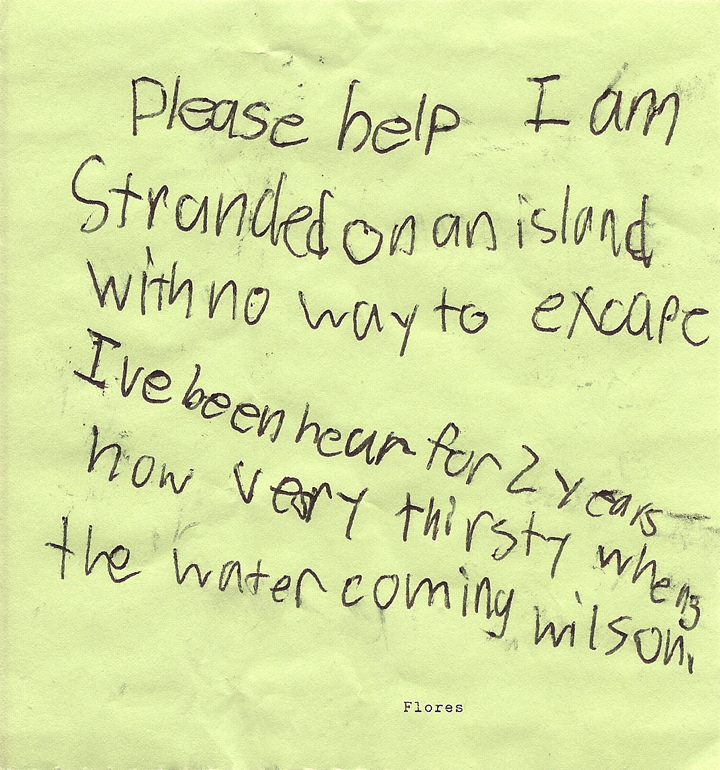 Please help I am
Stranded on an island
with no way to excape
I've been hear for 2 years
now very thirsty whens
the water coming wilson.
Flores